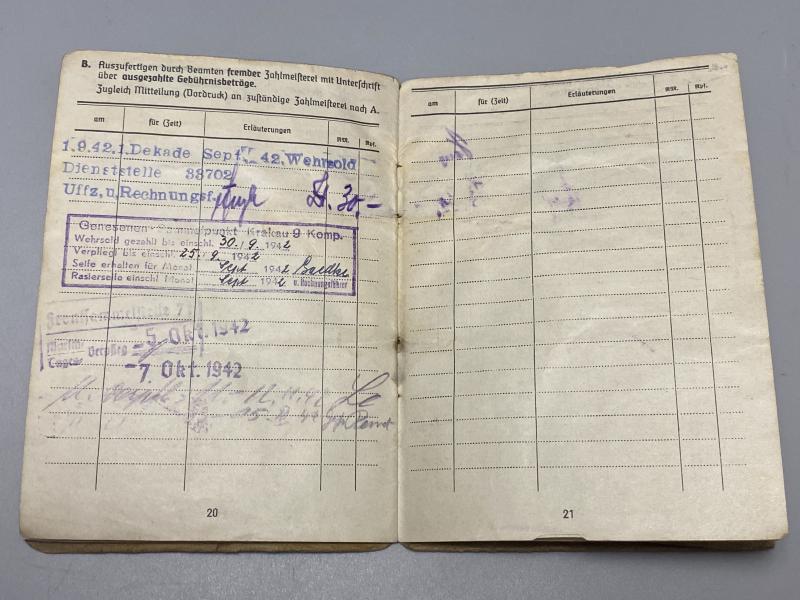 B. Auszufertigen durch Beamten fremder Zahlmeisterei mit Unterschrift
über ausgezahlte Gebührnisbeträge.
Zugleich Mitteilung (Vordruck) an zuständige Zahlmeisterei nach A.
am für (Zeit) Erläuterungen RM. Rpf.
1.9.42.1.Dekade Sept 42,Wehrsold
Dienststelle 33702
Uffz,u,Rechnungsf. 30,-
Genesenen-Sammelpunkt Krakau 9 Komp.
Wehrsold gezahlt bis einschl. 30./9. 1942
Verpflegt bis einschl. 25./9. 1942
Seife erhalten für Monat Sept 1942
Rasierseife einschl. Monat Sept 1942 u. Rechnungsführer
Frontsammelstelle 7
Verpfleg -5. Okt. 1942
-7. Okt. 1942
20
am für (Zeit) Erläuterungen RM. Rpf.
21